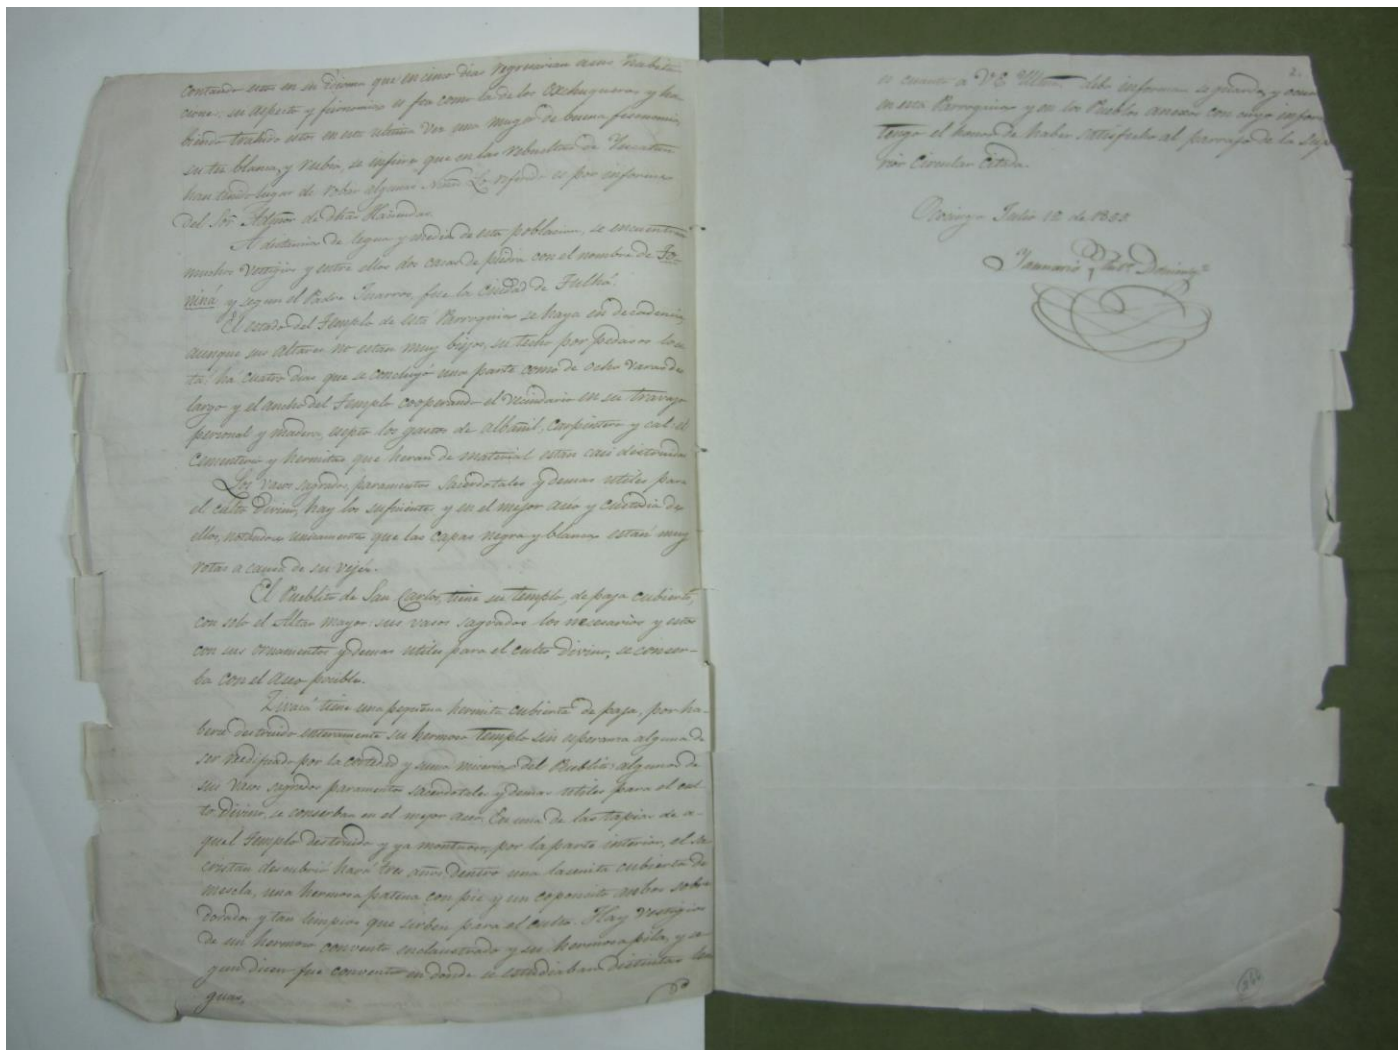 contando estos en su idioma que en cinco dias regresarian a sus habita-
ciones, su aspecto y fisonomia es fea como la de los Oxchuqueros y ha-
biendo trahido estos en esta ultima vez una muger de buena fisonomia,
su tez blanca, y rubia, se infiere que en las rebueltas de Yucatan
han tenido lugar de robar algunos niños. Lo referido es por informe
del Sor. de dhas Haciendas.
A distancia de legua y media de esta poblacion, se encuentran
muchos vestigios y entre ellos dos casas de piedra con el nombre de To-
niná y segun el Padre Juarros, fue la ciudad de Tulhá.
El estado del Templo de esta Parroquia se haya en decadencia,
aunque sus altares no estan muy biejos, su techo por pedasos lo es-
tá: ha cuatro dias que se concluyó una parte como de ocho varas de
largo y el ancho del Templo cooperando el vecindario en su travajo
personal y madera, esepto los gastos de albañil, carpintero y cal: el
cementerio y hermitas que heran de material estan casi destruidas
Los vasos sagrados, paramentos sacerdotales y demas utiles para
el culto divino, hay los suficientes, y en el mejor aseo y custodia de
ellos, notandose unicamente que las capas negra y blanca estan muy
rotas a causa de su vejes.
El Pueblito de San Carlos, tiene su templo, de paja cubierto,
con solo el Altar mayor: sus vasos sagrados los necesarios y estos
con sus ornamentos y demas utiles para el culto divino, se conser-
ba con el aseo posible.
Sivacá tiene una pequeña hermita cubierta de paja, por ha-
berse destruido enteramente su hermoso templo sin esperansa alguna de
ser reedificado por la cortedad y suma miseria del Pueblito: algunos de
sus vasos sagrados paramentos sacerdotales y demas utiles para el cul-
to divino, se conserban en el mejor aseo. En una de las tapias de a-
quel Templo destruido y ya montuoso, por la parte interior, el sa-
cristan descubrió hará tres años dentro una lasenita cubierta de
mescla, una hermosa patena con pie y un coponsito ambos sobre
dorados y tan limpios que sirben para el culto. Hay vestigios
de un hermoso convento enclaustrado y su hermosa pila, y se-
gun dicen fue convento en donde se estudiaban distintas len-
guas,
2.
es cuanto a V.E. Yltma. debe informar se guarda y ocurre
en esta Parroquia y en los Pueblos anexos con cuyo informe
tengo el honor de haber satisfecho al parrafo de la Supe-
rior Circular Citada.
Ocosingo Julio 12 de